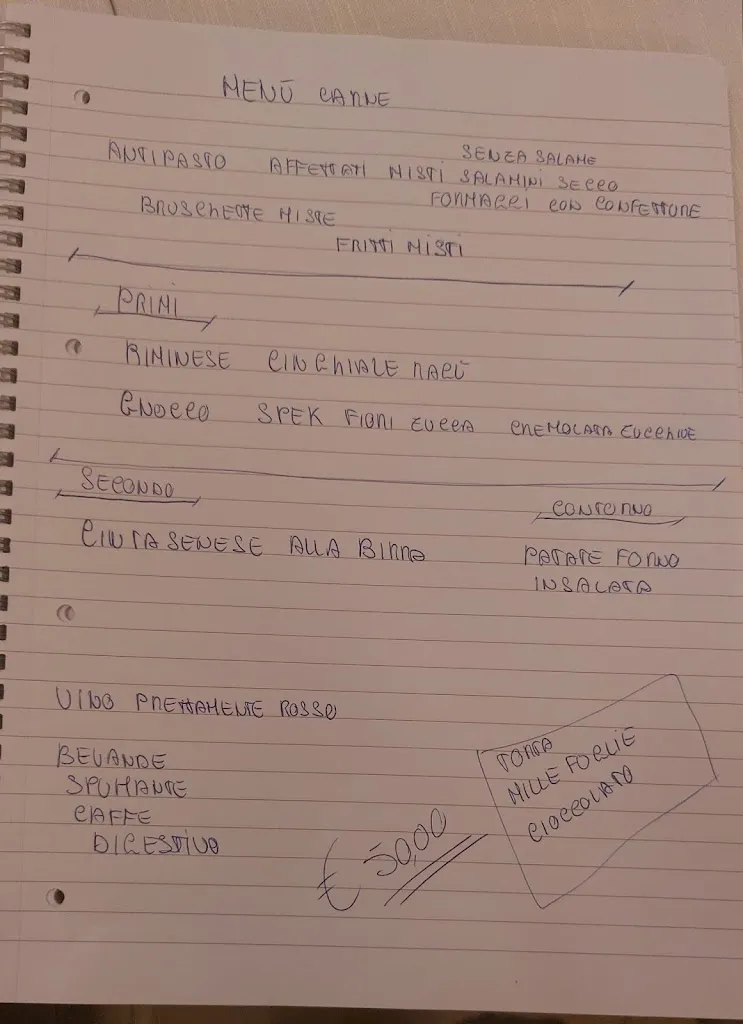 MENÙ CARNE
SENZA SALAME
ANTIPASTO AFFETTATI MISTI SALAMINI SECCO
FORMAGGI CON CONFETTURE
BRUSCHETTE MISTE
FRITTI MISTI
PRIMI
RIMINESE CINGHIALE RAGÙ
GNOCCO SPEK FIORI ZUCCA CREMOLATA ZUCCHINE
SECONDO
CONTORNO
CINTA SENESE ALLA BIRRA
PATATE FORNO
INSALATA
VINO PRETTAMENTE ROSSO
BEVANDE
SPUMANTE
CAFFE
DIGESTIVO
€ 50,00
TORTA
MILLE FOGLIE
CIOCCOLATO